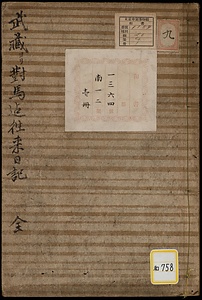 武藏ゟ對馬迠往来日記 全
九
一三六四
南一二
壱冊
758